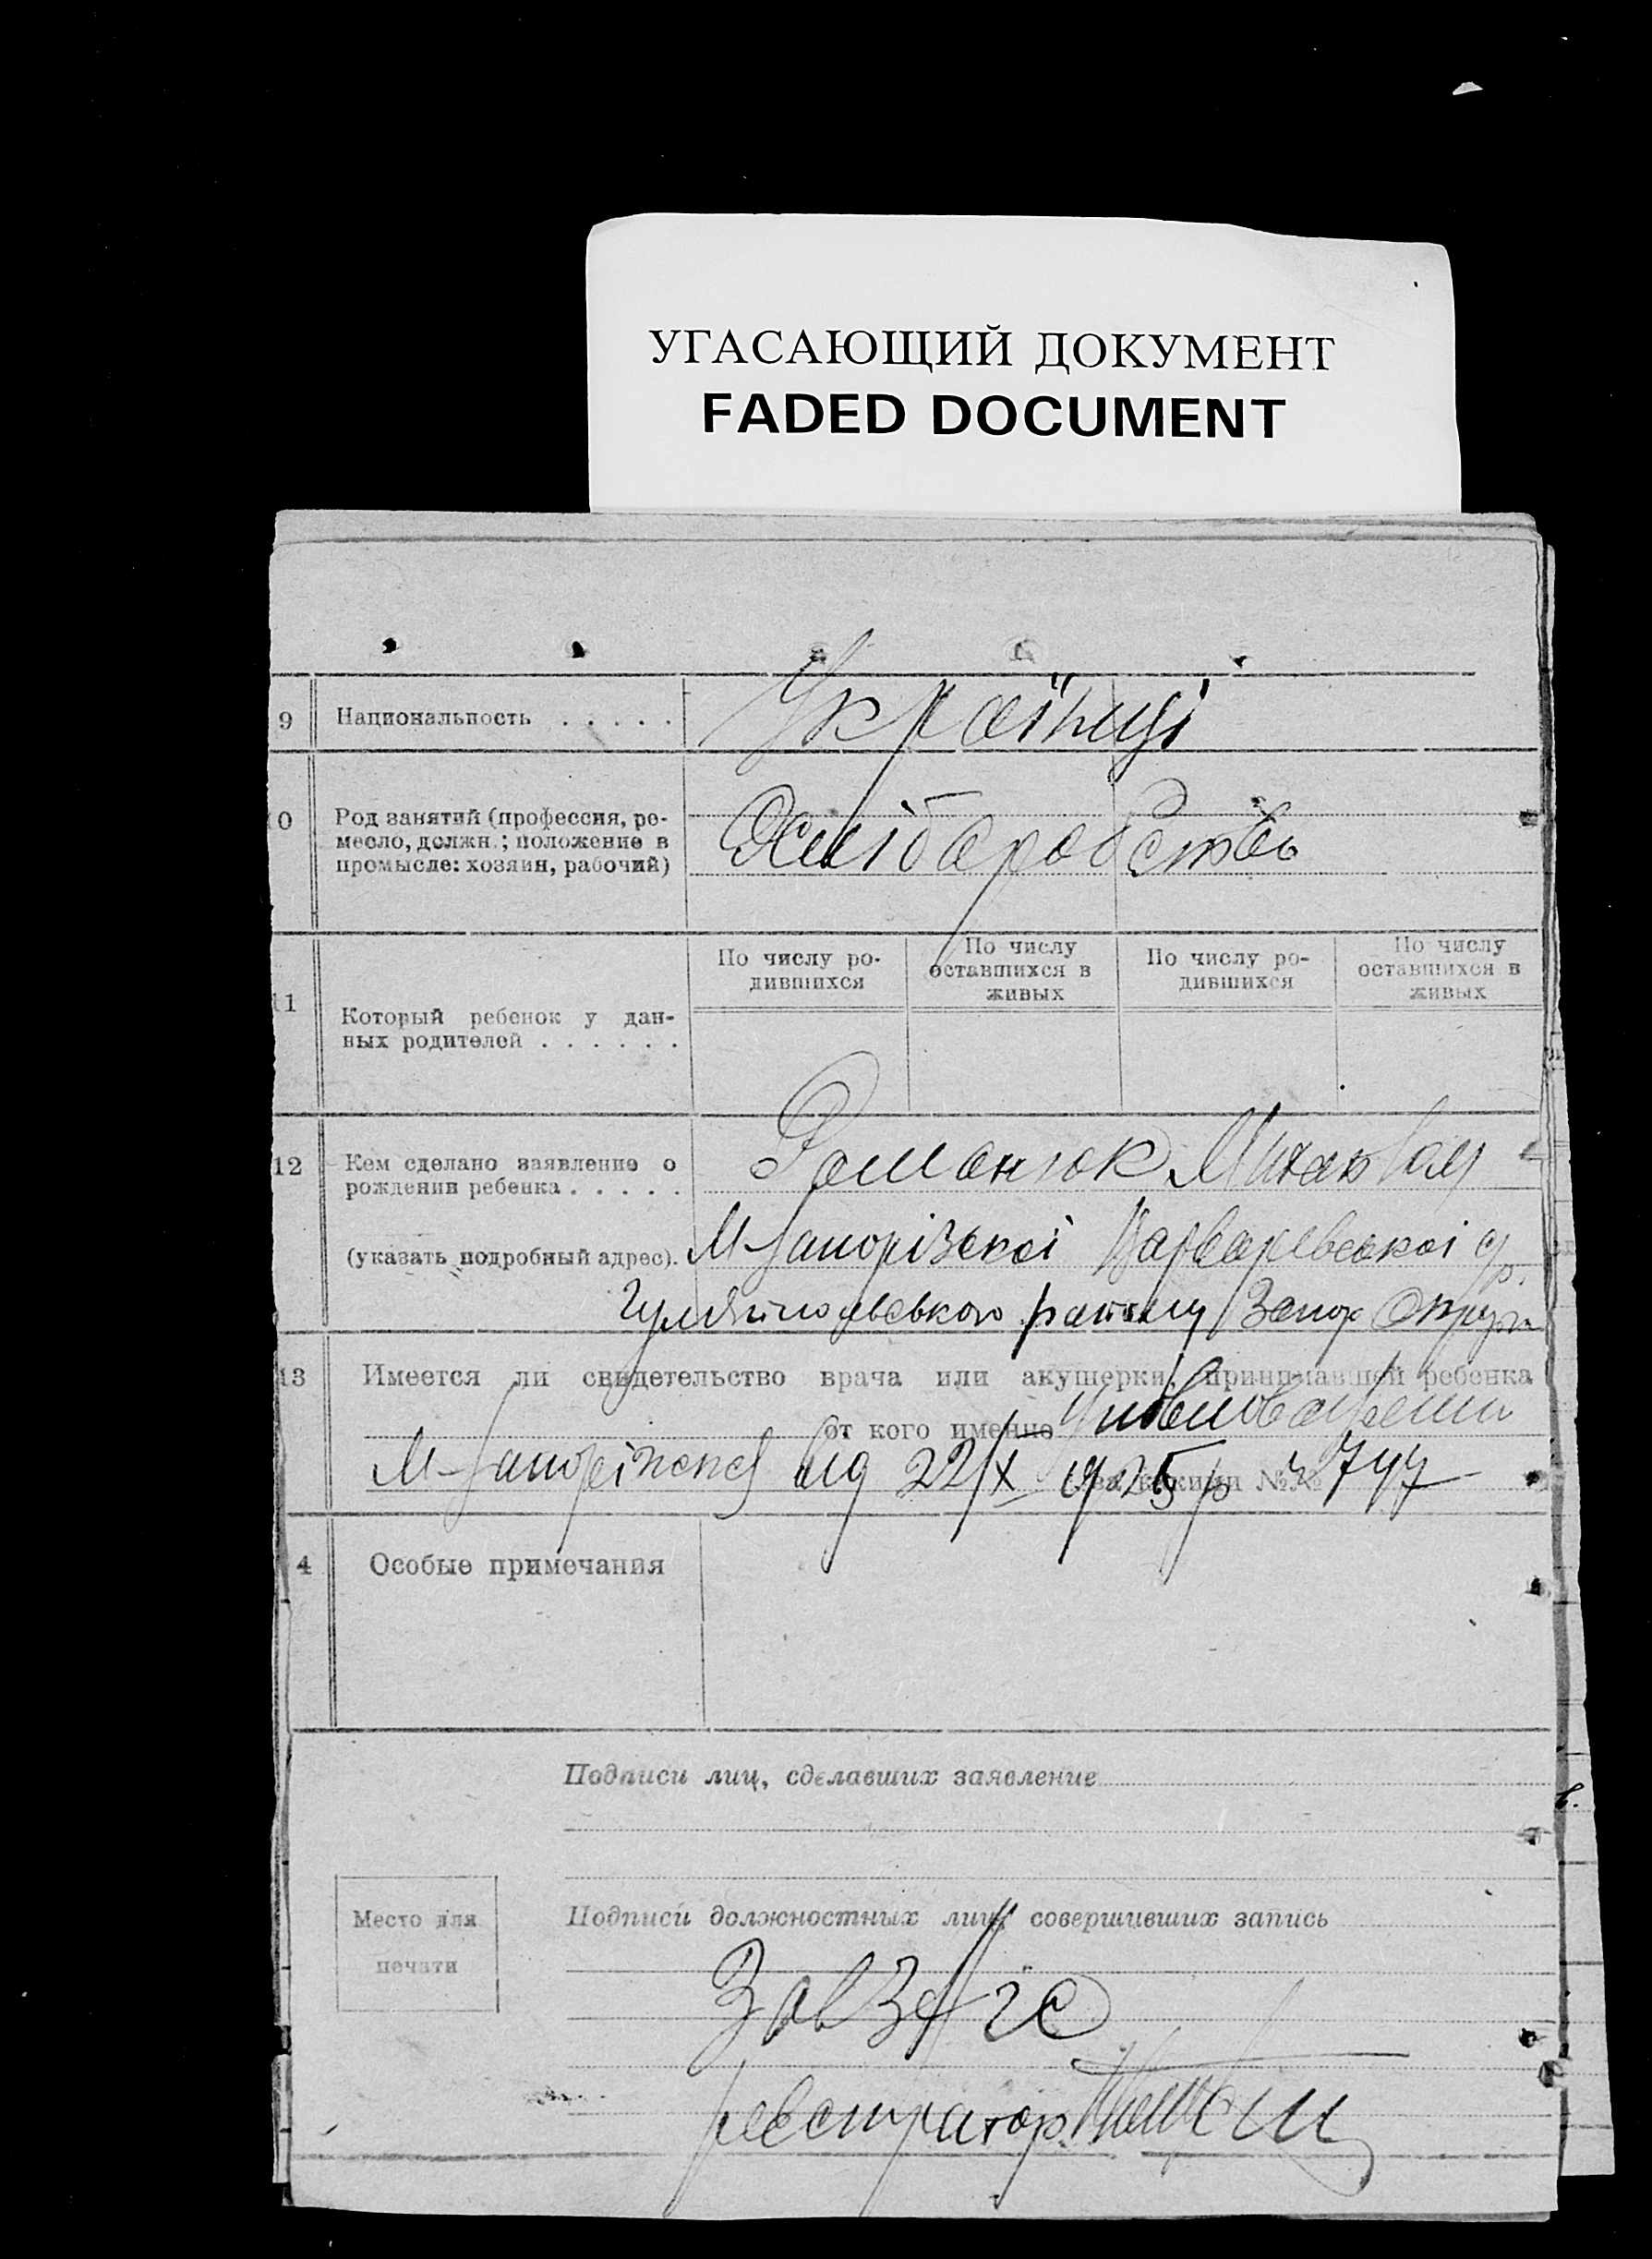 УГАСАЮЩИЙ ДОКУМЕНТ
FADED DOCUMENT
9 Национальность . . . . . Українці
0 Род занятий (профессия, ре-
месло, должн.; положение в
промысле: хозяин, рабочий)
Хліборобство
11 Который ребенок у дан-
ных родителей . . . . . .
По числу ро-
дившихся
По числу
оставшихся в
живых
По числу ро-
дившихся
По числу
оставшихся в
живых
12 Кем сделано заявление о
рождении ребенка . . . . .
Романюк Михайлом
(указать подробный адрес). М-Запорізскоі Варваревскоі с/р.
Гуляйпольевського району Запор Округи
13 Имеется ли свидетельство врача или акушерки, принимавшей ребенка
от кого именно
М-Запоріжскої від 22/X 1925 р № 747
4 Особые примечания
Подписи лиц, сделавших заявление
Место для
печати
Подписи должностных лиц, совершивших запись
Зав ЗАГС
реєстратор